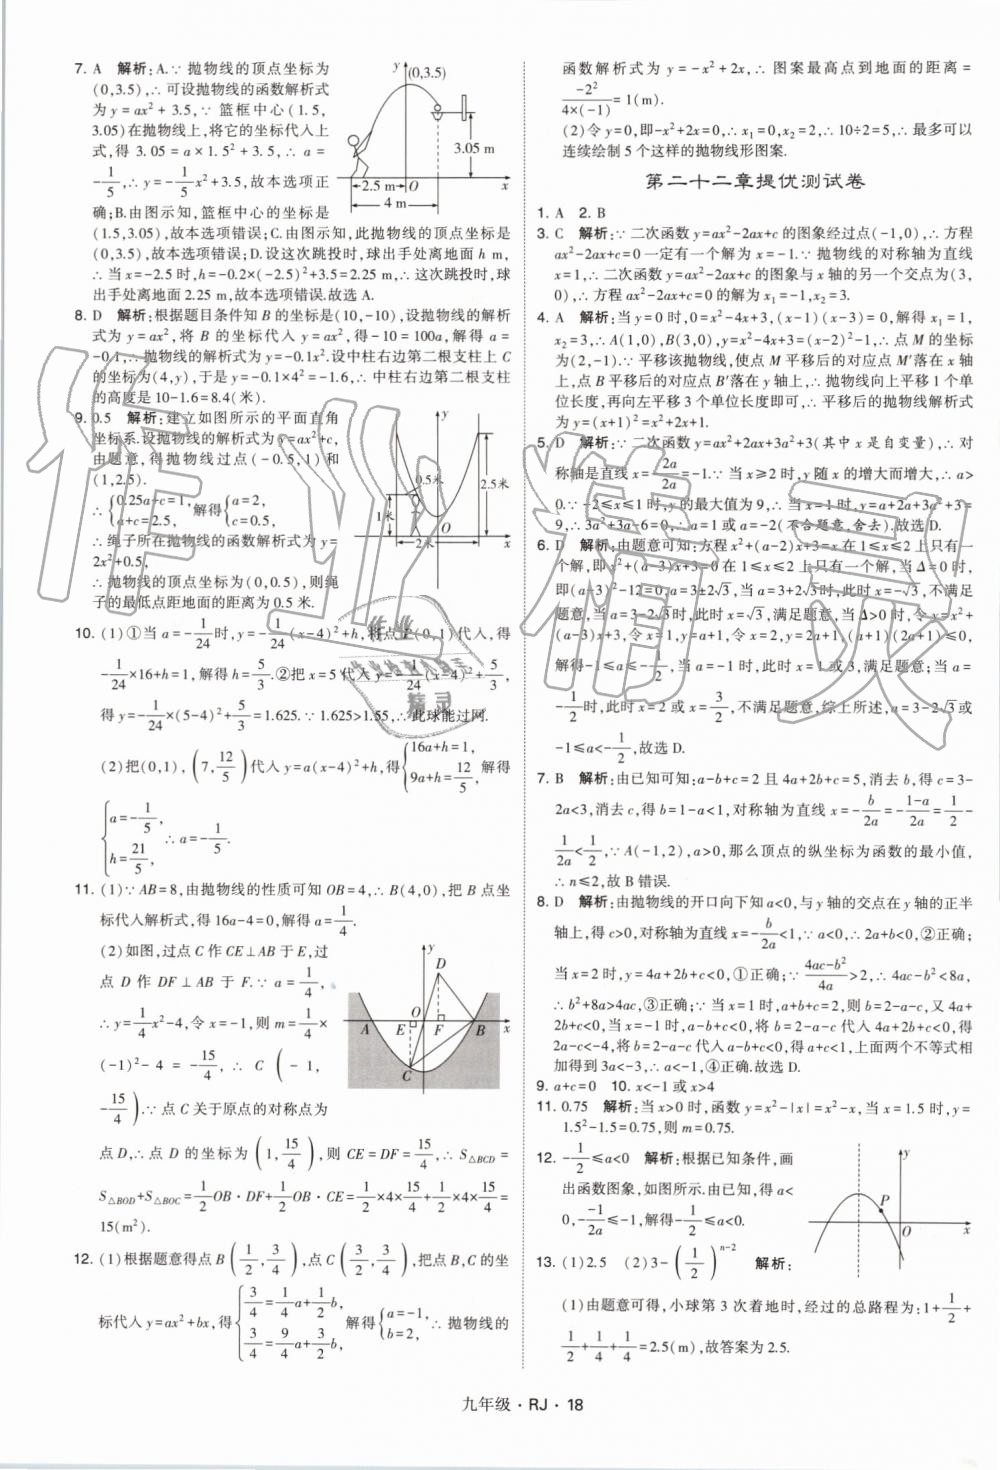 7. A 解析:A.∵ 抛物线的顶点坐标为
(0,3.5),∴ 可设抛物线的函数解析式
为 y=ax²+3.5,∵ 篮框中心(1.5,
3.05)在抛物线上,将它的坐标代入上
式,得 3.05=a×1.5²+3.5,∴ a=
-1/5,∴ y=-1/5x²+3.5,故本选项正
确;B.由图示知,篮框中心的坐标是
(1.5,3.05),故本选项错误;C.由图示知,此抛物线的顶点坐标是
(0,3.5),故本选项错误;D.设这次跳投时,球出手处离地面 h m,
∴ 当 x=-2.5 时,h=-0.2×(-2.5)²+3.5=2.25 m,∴ 这次跳投时,球
出手处离地面 2.25 m,故本选项错误.故选 A.
y
(0,3.5)
3.05 m
2.5 m O x
4 m
8. D 解析:根据题目条件知 B 的坐标是(10,-10),设抛物线的解析
式为 y=ax²,将 B 的坐标代入 y=ax²,得-10=100a,解得 a=
-0.1,∴ 抛物线的解析式为 y=-0.1x².设中柱右边第二根支柱上 C
的坐标为(4,y),于是 y=-0.1×4²=-1.6,∴ 中柱右边第二根支柱
的高度是 10-1.6=8.4(米).
9. 0.5 解析:建立如图所示的平面直角
坐标系.设抛物线的解析式为 y=ax²+c,
由题意,得抛物线过点(-0.5,1)和
(1,2.5).
∴ {0.25a+c=1, a+c=2.5, 解得{a=2, c=0.5,
∴ 绳子所在抛物线的函数解析式为 y=
2x²+0.5,
∴ 抛物线的顶点坐标为(0,0.5),则绳
子的最低点距地面的距离为 0.5 米.
y
0.5米
2.5米
1米
O x
2米
10. (1)①当 a=-1/24时,y=-1/24(x-4)²+h,将点 P(0,1)代入,得
-1/24×16+h=1,解得 h=5/3.②把 x=5 代入 y=-1/24(x-4)²+5/3,
得 y=-1/24×(5-4)²+5/3=1.625.∵ 1.625>1.55,∴ 此球能过网.
(2)把(0,1),(7,12/5)代入 y=a(x-4)²+h,得{16a+h=1, 9a+h=12/5, 解得
{a=-1/5, h=21/5, ∴ a=-1/5.
11. (1)∵ AB=8,由抛物线的性质可知 OB=4,∴ B(4,0),把 B 点坐
标代入解析式,得 16a-4=0,解得 a=1/4.
(2)如图,过点 C 作 CE⊥AB 于 E,过
点 D 作 DF⊥AB 于 F.∵ a=1/4,
∴ y=1/4x²-4,令 x=-1,则 m=1/4×
(-1)²-4=-15/4,∴ C(-1,
-15/4).∵ 点 C 关于原点的对称点为
点 D,∴ 点 D 的坐标为(1,15/4),则 CE=DF=15/4,∴ S△BCD=
S△BOD+S△BOC=1/2OB·DF+1/2OB·CE=1/2×4×15/4+1/2×4×15/4=
15(m²).
y
D
O
A E F B x
C
12. (1)根据题意得点 B(1/2,3/4),点 C(3/2,3/4),把点 B,C 的坐
标代入 y=ax²+bx,得{3/4=1/4a+1/2b, 3/4=9/4a+3/2b, 解得{a=-1, b=2, ∴ 抛物线的
函数解析式为 y=-x²+2x,∴ 图案最高点到地面的距离=
-2²/4×(-1)=1(m).
(2)令 y=0,即-x²+2x=0,∴ x₁=0,x₂=2,∴ 10÷2=5,∴ 最多可以
连续绘制 5 个这样的抛物线形图案.
第二十二章提优测试卷
1. A 2. B
3. C 解析:∵ 二次函数 y=ax²-2ax+c 的图象经过点(-1,0),∴ 方程
ax²-2ax+c=0 一定有一个解为 x=-1.∵ 抛物线的对称轴为直线
x=1,∴ 二次函数 y=ax²-2ax+c 的图象与 x 轴的另一个交点为(3,
0),∴ 方程 ax²-2ax+c=0 的解为 x₁=-1,x₂=3.
4. A 解析:当 y=0 时,0=x²-4x+3,(x-1)(x-3)=0,解得 x₁=1,
x₂=3,∴ A(1,0),B(3,0),y=x²-4x+3=(x-2)²-1,∴ 点 M 的坐标
为(2,-1).∵ 平移该抛物线,使点 M 平移后的对应点 M′落在 x 轴
上,点 B 平移后的对应点 B′落在 y 轴上,∴ 抛物线向上平移 1 个单
位长度,再向左平移 3 个单位长度即可,∴ 平移后的抛物线解析式
为 y=(x+1)²=x²+2x+1.
5. D 解析:∵ 二次函数 y=ax²+2ax+3a²+3(其中 x 是自变量),∴ 对
称轴是直线 x=-2a/2a=-1.∵ 当 x≥2 时,y 随 x 的增大而增大,∴ a>
0.∵ -2≤x≤1 时,y 的最大值为 9,∴ 当 x=1 时,y=a+2a+3a²+3=
9,∴ 3a²+3a-6=0,∴ a=1 或 a=-2(不合题意,舍去).故选 D.
6. D 解析:由题意可知:方程 x²+(a-2)x+3=x 在 1≤x≤2 上只有一
个解,即 x²+(a-3)x+3=0 在 1≤x≤2 上只有一个解,当 Δ=0 时,
即(a-3)²-12=0,a=3±2√3,当 a=3+2√3时,此时 x=-√3,不满足
题意,当 a=3-2√3时,此时 x=√3,满足题意,当 Δ>0 时,令 y=x²+
(a-3)x+3,令 x=1,y=a+1,令 x=2,y=2a+1,(a+1)(2a+1)≤0,
解得-1≤a≤-1/2,当 a=-1 时,此时 x=1 或 3,满足题意;当 a=
-1/2时,此时 x=2 或 x=3/2,不满足题意,综上所述,a=3-2√3或
-1≤a<-1/2,故选 D.
7. B 解析:由已知可知:a-b+c=2 且 4a+2b+c=5,消去 b,得 c=3-
2a<3,消去 c,得 b=1-a<1,对称轴为直线 x=-b/2a=-1-a/2a=1/2-
1/2a<1/2,∵ A(-1,2),a>0,那么顶点的纵坐标为函数的最小值,
∴ n≤2,故 B 错误.
8. D 解析:由抛物线的开口向下知 a<0,与 y 轴的交点在 y 轴的正半
轴上,得 c>0,对称轴为直线 x=-b/2a<1,∵ a<0,∴ 2a+b<0,②正确;
当 x=2 时,y=4a+2b+c<0,①正确;∵ 4ac-b²/4a>2,∴ 4ac-b²<8a,
∴ b²+8a>4ac,③正确;当 x=1 时,a+b+c=2,则 b=2-a-c,又 4a+
2b+c<0,当 x=-1 时,a-b+c<0,将 b=2-a-c 代入 4a+2b+c<0,得
2a-c<-4,将 b=2-a-c 代入 a-b+c<0,得 a+c<1,上面两个不等式相
加得到 3a<-3,∴ a<-1,④正确.故选 D.
9. a+c=0 10. x<-1 或 x>4
11. 0.75 解析:当 x>0 时,函数 y=x²-|x|=x²-x,当 x=1.5 时,y=
1.5²-1.5=0.75,则 m=0.75.
12. -1/2≤a<0 解析:根据已知条件,画
出函数图象,如图所示.由已知,得 a<
0,--1/2a≤-1,解得-1/2≤a<0.
y
P
O x
13. (1)2.5 (2)3-(1/2)ⁿ⁻² 解析:
(1)由题意可得,小球第 3 次着地时,经过的总路程为:1+1/2+
1/2+1/4+1/4=2.5(m),故答案为 2.5.
九年级·RJ·18
作业精灵
作业
精灵